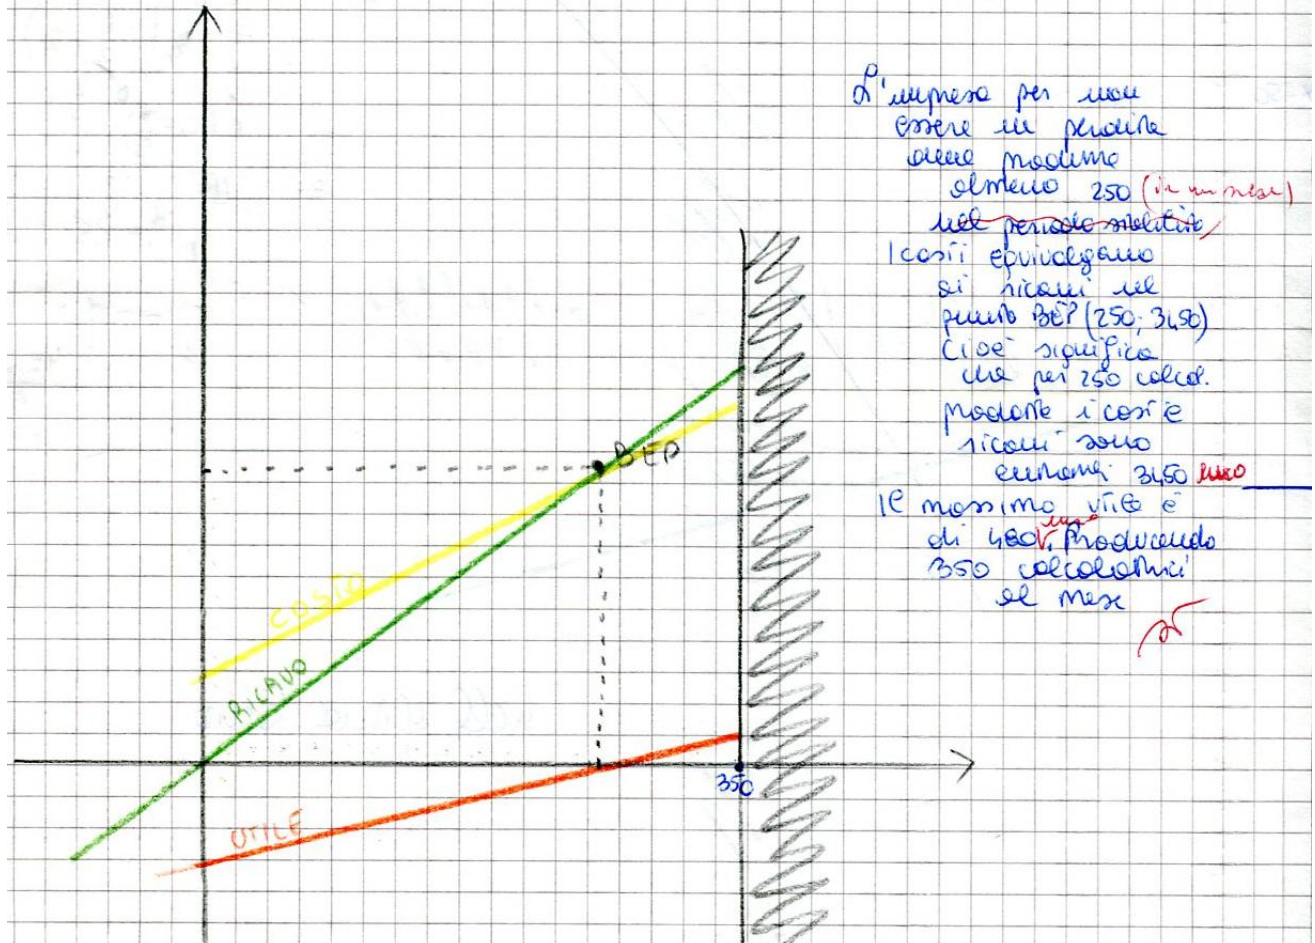 L'impresa per non
essere in perdita
deve produrre
almeno 250 (in un mese)
nel periodo stabilito
I costi equivalgono
ai ricavi nel
punto BEP (250; 3450)
Cioè significa
che per 250 calcol.
prodotte i costi e
ricavi sono
entrambi 3450 euro
Il massimo utile è
di 480 euro, producendo
350 calcolatrici
al mese
BEP
COSTO
RICAVO
350
UTILE